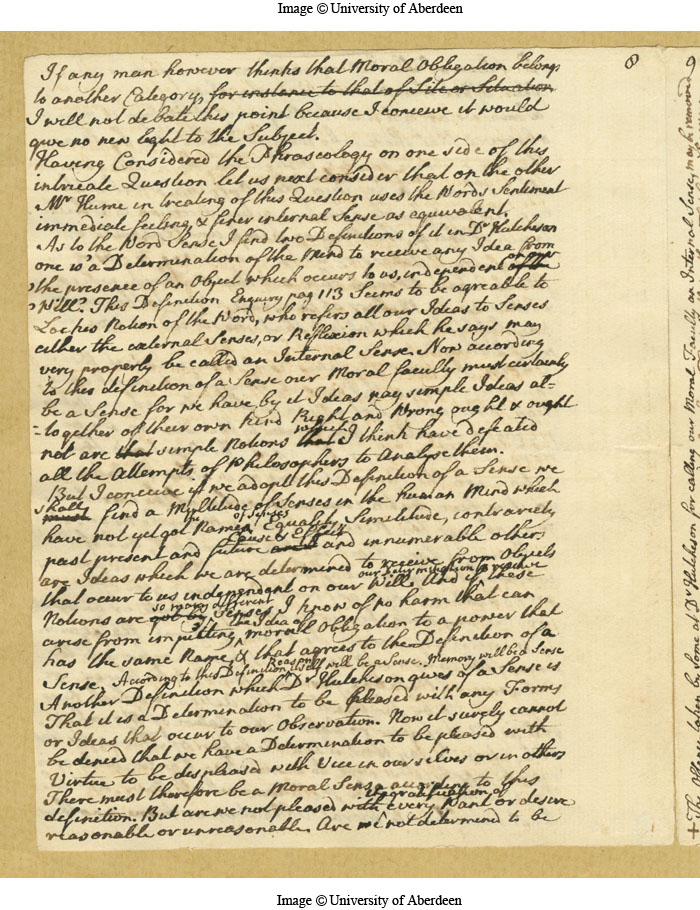 Image © University of Aberdeen
8
If any man however thinks that Moral Obligation belongs
to another Category, for instance to that of Site or Situation
I will not debate this point because I conceive it would
give no new light to the Subject.
Having Considered the Phraseology on one side of this
intricate Question let us next consider that on the other
Mr Hume in treating of this Question uses the Words Sentiment
immediate feeling & finer internal Sense as equivalent.
As to the Word Sense I find two Definitions of it in Dr Hutcheson
one is a Determination of the Mind to receive any Idea from
the presence of an Object which occurs to us, independent of our
Will. This Definition Enquiry pag 113 Seems to be agreable to
Lockes Notion of the Word, who refers all our Ideas to Senses
either the external Senses, or Reflexion which he says may
very properly be called an Internal Sense. Now according
to this definition of a Sense our Moral faculty must certainly
be a Sense for we have by it Ideas nay simple Ideas al-
-together of their own kind Right and Wrong ought & ought
not are that simple Notions that which I think have defeated
all the Attempts of Philosophers to Analyse them.
But I conceive if we adopt this Definition of a Sense we
must shall find a Multitude of Senses in the human Mind which
have not yet got Names of Senses Equality, Similitude, contrariety
past present and future Cause & Effect and innumerable others
are Ideas which we are determined to receive from Objects
that occur to us independent on our Will. And if our determination to receive these
Notions are got by so many different Senses I know of no harm that can
arise from imputing the Idea of moral Obligation to a power that
has the same Name & that agrees to the Definition of a
Sense. According to this Definition Reason itself will be a Sense. Memory will be a Sense
Another Definition which Dr Hutchison gives of a Sense is
That it is a Determination to be pleased with any Forms
or Ideas that occur to our Observation. Now it surely cannot
be denied that we have a Determination to be pleased with
Virtue to be displeased with Vice in our selves or in others
There must therefore be a Moral Sense according to this
definition. But are we not pleased with the gratification of every Want or desire
reasonable or unreasonable. Are we not determined to be
+ The Offence taken by some at Dr Hutcheson for calling our Moral Faculty an Internal Sense, may be removed
Image © University of Aberdeen